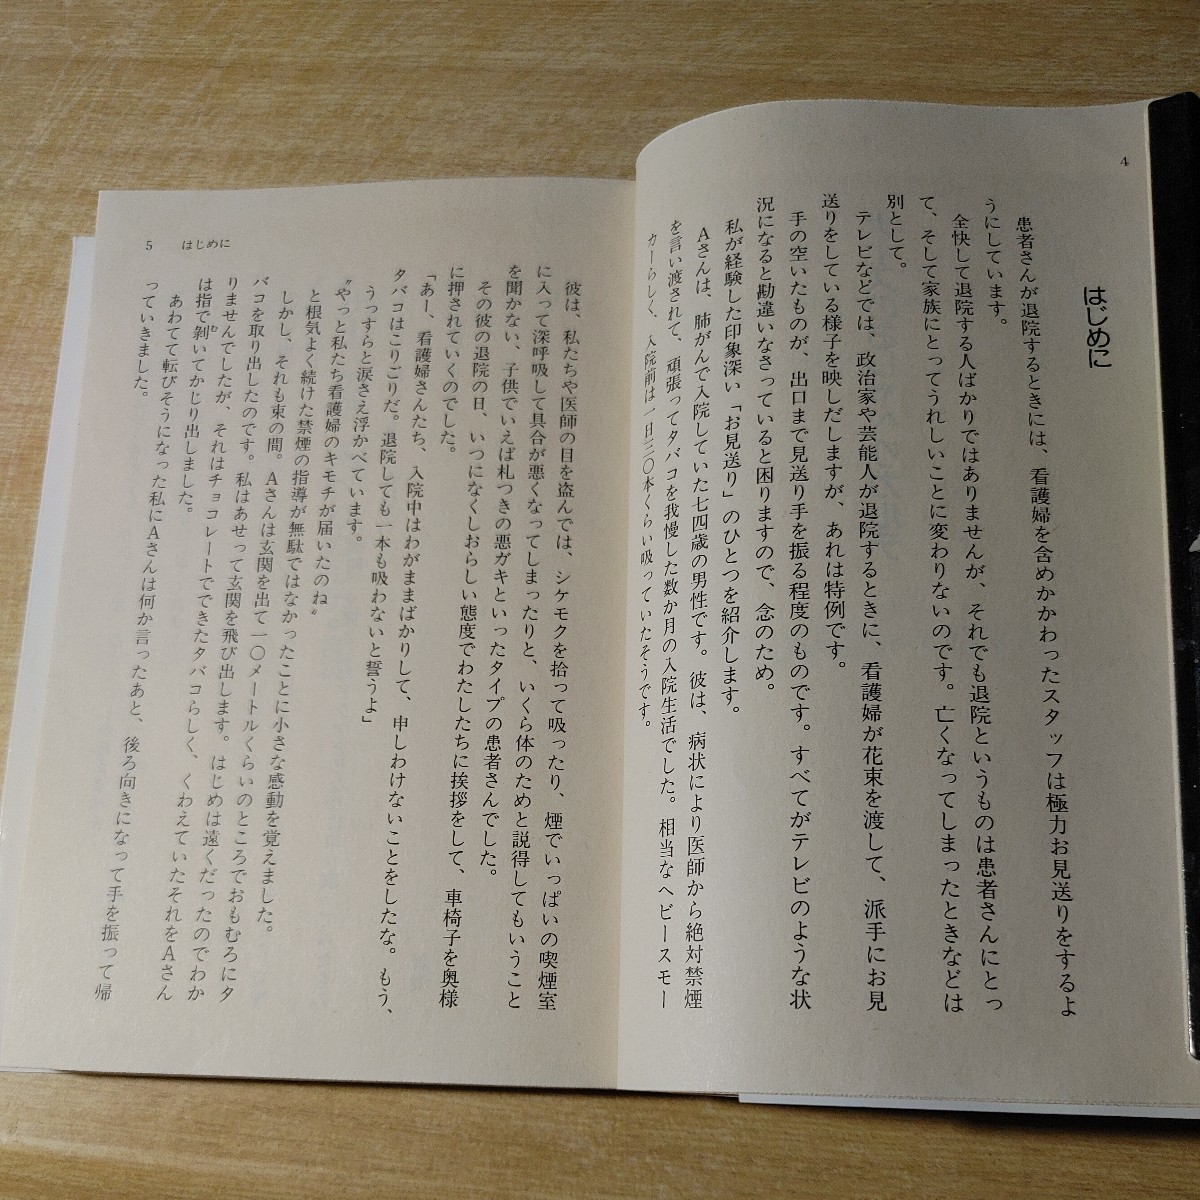 4
はじめに
患者さんが退院するときには、看護婦を含めかかわったスタッフは極力お見送りをするよ
うにしています。
全快して退院する人ばかりではありませんが、それでも退院というものは患者さんにとっ
て、そして家族にとってうれしいことに変わりないのです。亡くなってしまったときなどは
別として。
テレビなどでは、政治家や芸能人が退院するときに、看護婦が花束を渡して、派手にお見
送りをしている様子を映しだしますが、あれは特例です。
手の空いたものが、出口まで見送り手を振る程度のものです。すべてがテレビのような状
況になると勘違いなさっていると困りますので、念のため。
私が経験した印象深い「お見送り」のひとつを紹介します。
Aさんは、肺がんで入院していた七四歳の男性です。彼は、病状により医師から絶対禁煙
を言い渡されて、頑張ってタバコを我慢した数か月の入院生活でした。相当なヘビースモー
カーらしく、入院前は一日三〇本くらい吸っていたそうです。
5 はじめに
彼は、私たちや医師の目を盗んでは、シケモクを拾って吸ったり、煙でいっぱいの喫煙室
に入って深呼吸して具合が悪くなってしまったりと、いくら体のためと説得してもいうこと
を聞かない、子供でいえば札つきの悪ガキといったタイプの患者さんでした。
その彼の退院の日、いつになくしおらしい態度でわたしたちに挨拶をして、車椅子を奥様
に押されていくのでした。
「あー、看護婦さんたち、入院中はわがままばかりして、申しわけないことをしたな。もう、
タバコはこりごりだ。退院しても一本も吸わないと誓うよ」
うっすらと涙さえ浮かべています。
〝やっと私たち看護婦のキモチが届いたのね〟
と根気よく続けた禁煙の指導が無駄ではなかったことに小さな感動を覚えました。
しかし、それも束の間。Aさんは玄関を出て一〇メートルくらいのところでおもむろにタ
バコを取り出したのです。私はあせって玄関を飛び出します。はじめは遠くだったのでわか
りませんでしたが、それはチョコレートでできたタバコらしく、くわえていたそれをAさん
は指で剝いてかじり出しました。
あわてて転びそうになった私にAさんは何か言ったあと、後ろ向きになって手を振って帰
っていきました。